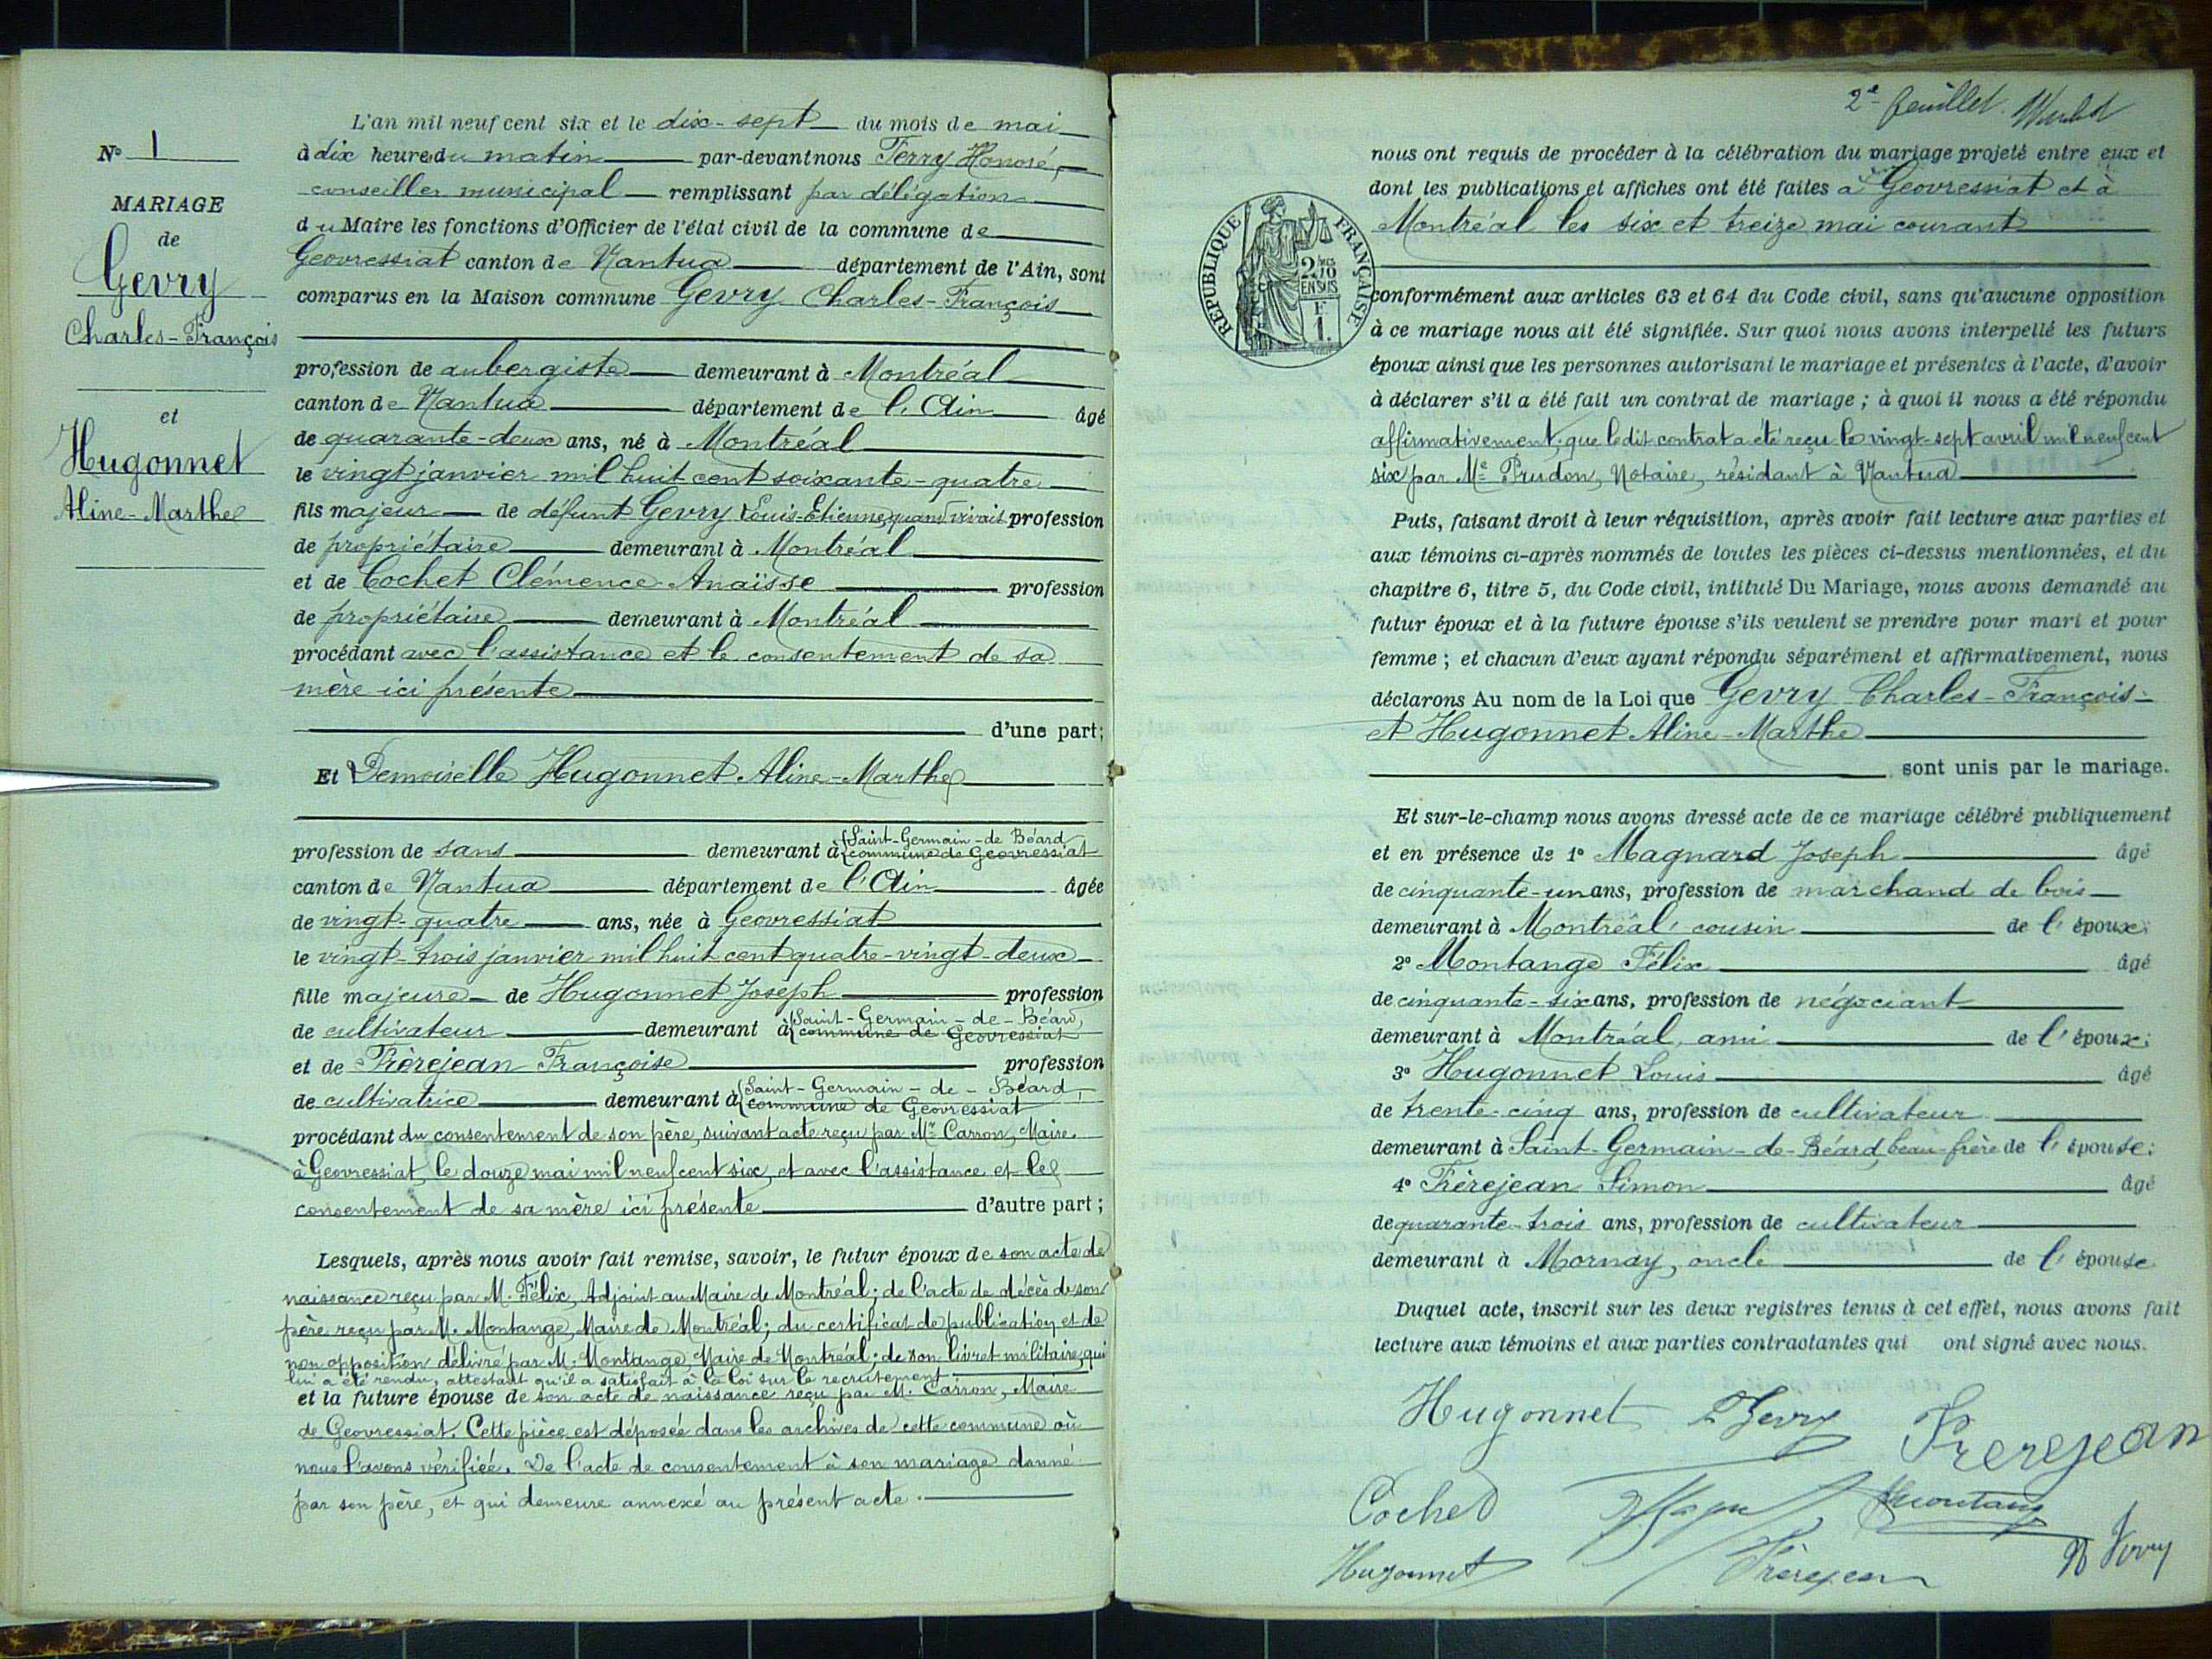 N° 1
MARIAGE
de
Gevry
Charles-François
et
Hugonnet
Aline-Marthe
L'an mil neuf cent six et le dix-sept du mois de mai
à dix heures du matin par-devant nous Ferry Honoré,
conseiller municipal remplissant par délégation
du Maire les fonctions d'Officier de l'état civil de la commune de
Geovressiat canton de Nantua département de l'Ain, sont
comparus en la Maison commune Gevry Charles-François
profession de aubergiste demeurant à Montréal
canton de Nantua département de l'Ain âgé
de quarante-deux ans, né à Montréal
le vingt janvier mil huit cent soixante-quatre
fils majeur de défunt Gevry Louis-Etienne, quand vivait profession
de propriétaire demeurant à Montréal
et de Cochet Clémence-Anaïsse profession
de propriétaire demeurant à Montréal
procédant avec l'assistance et le consentement de sa
mère ici présente
d'une part;
Et Demoiselle Hugonnet Aline-Marthe
profession de sans demeurant à Saint-Germain-de Béard
commune de Geovressiat
canton de Nantua département de l'Ain âgée
de vingt-quatre ans, née à Geovressiat
le vingt-trois janvier mil huit cent quatre-vingt-deux
fille majeure de Hugonnet Joseph profession
de cultivateur demeurant à Saint-Germain-de-Béard,
commune de Geovressiat
et de Frèrejean Françoise profession
de cultivatrice demeurant à Saint-Germain-de-Béard
commune de Geovressiat
procédant du consentement de son père, suivant acte reçu par Mr Carron, Maire
à Geovressiat, le douze mai mil neuf cent six, et avec l'assistance et le
consentement de sa mère ici présente d'autre part;
Lesquels, après nous avoir fait remise, savoir, le futur époux de son acte de
naissance reçu par M. Félix, Adjoint au Maire de Montréal; de l'acte de décès de son
père reçu par M. Montange, Maire de Montréal; du certificat de publication et de
non opposition délivré par M. Montange, Maire de Montréal; de son livret militaire, qui
lui a été rendu, attestant qu'il a satisfait à la loi sur le recrutement
et la future épouse de son acte de naissance reçu par M. Carron, Maire
de Geovressiat. Cette pièce est déposée dans les archives de cette commune où
nous l'avons vérifiée. De l'acte de consentement à son mariage donné
par son père, et qui demeure annexé au présent acte.
2e feuillet.
RÉPUBLIQUE FRANÇAISE
2/10
EN SUS
F
1.
nous ont requis de procéder à la célébration du mariage projeté entre eux et
dont les publications et affiches ont été faites à Geovressiat et à
Montréal les six et treize mai courant
conformément aux articles 63 et 64 du Code civil, sans qu'aucune opposition
à ce mariage nous ait été signifiée. Sur quoi nous avons interpellé les futurs
époux ainsi que les personnes autorisant le mariage et présentes à l'acte, d'avoir
à déclarer s'il a été fait un contrat de mariage; à quoi il nous a été répondu
affirmativement, que ledit contrat a été reçu le vingt-sept avril mil neuf cent
six par Me Prudon, Notaire, résidant à Nantua
Puis, faisant droit à leur réquisition, après avoir fait lecture aux parties et
aux témoins ci-après nommés de toutes les pièces ci-dessus mentionnées, et du
chapitre 6, titre 5, du Code civil, intitulé Du Mariage, nous avons demandé au
futur époux et à la future épouse s'ils veulent se prendre pour mari et pour
femme; et chacun d'eux ayant répondu séparément et affirmativement, nous
déclarons Au nom de la Loi que Gevry Charles-François
et Hugonnet Aline-Marthe
sont unis par le mariage.
Et sur-le-champ nous avons dressé acte de ce mariage célébré publiquement
et en présence de 1° Magnard Joseph âgé
de cinquante-un ans, profession de marchand de bois
demeurant à Montréal, cousin de l'époux;
2° Montange Félix âgé
de cinquante-six ans, profession de négociant
demeurant à Montréal, ami de l'époux;
3° Hugonnet Louis âgé
de trente-cinq ans, profession de cultivateur
demeurant à Saint-Germain-de-Béard, beau-frère de l'épouse;
4° Frèrejean Simon âgé
de quarante-trois ans, profession de cultivateur
demeurant à Mornay, oncle de l'épouse
Duquel acte, inscrit sur les deux registres tenus à cet effet, nous avons fait
lecture aux témoins et aux parties contractantes qui ont signé avec nous.
Hugonnet Gevry Frerejean
Cochet Montange
Hugonnet Frèrejean H Ferry